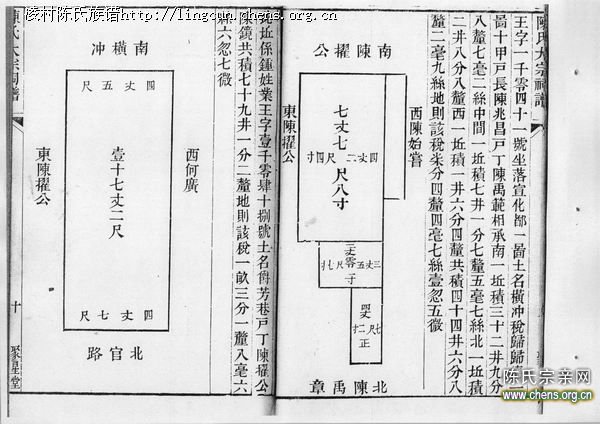 陵村陈氏族谱--http://lingcun.chens.org.cn
陳氏大宗祠譜
王字一千零四十一號坐落宣化都一啚土名橫冲稅歸
啚十甲戶長陳兆昌戶丁陳禹範相承南一坵積三十二井九分
八釐七毫二絲中間一坵積七井一分七釐五毫七絲北一坵積
二井八分八釐西一坵積一井六分四釐共積四十四井六分八
釐二毫九絲地則該稅柒分四釐四毫七絲壹忽五微
西陳始嘗
南陳擢公
四丈二尺四寸
七丈七尺八寸
三丈五尺七寸
三丈零子
七尺二寸
四丈正
東陳擢公
北陳禹章
坵近係鍾姓業王字壹千零肆十捌號土名爵芳巷戶丁陳擢公
陳鏡共積七十九井一分二釐地則該稅一畝三分一釐八毫六
絲六忽七微
西何廣
南橫冲
四丈五尺
壹十七丈二尺
四丈七尺
北官路
東陳擢公
十
聚星堂
陈氏宗亲网
www.chens.org.cn